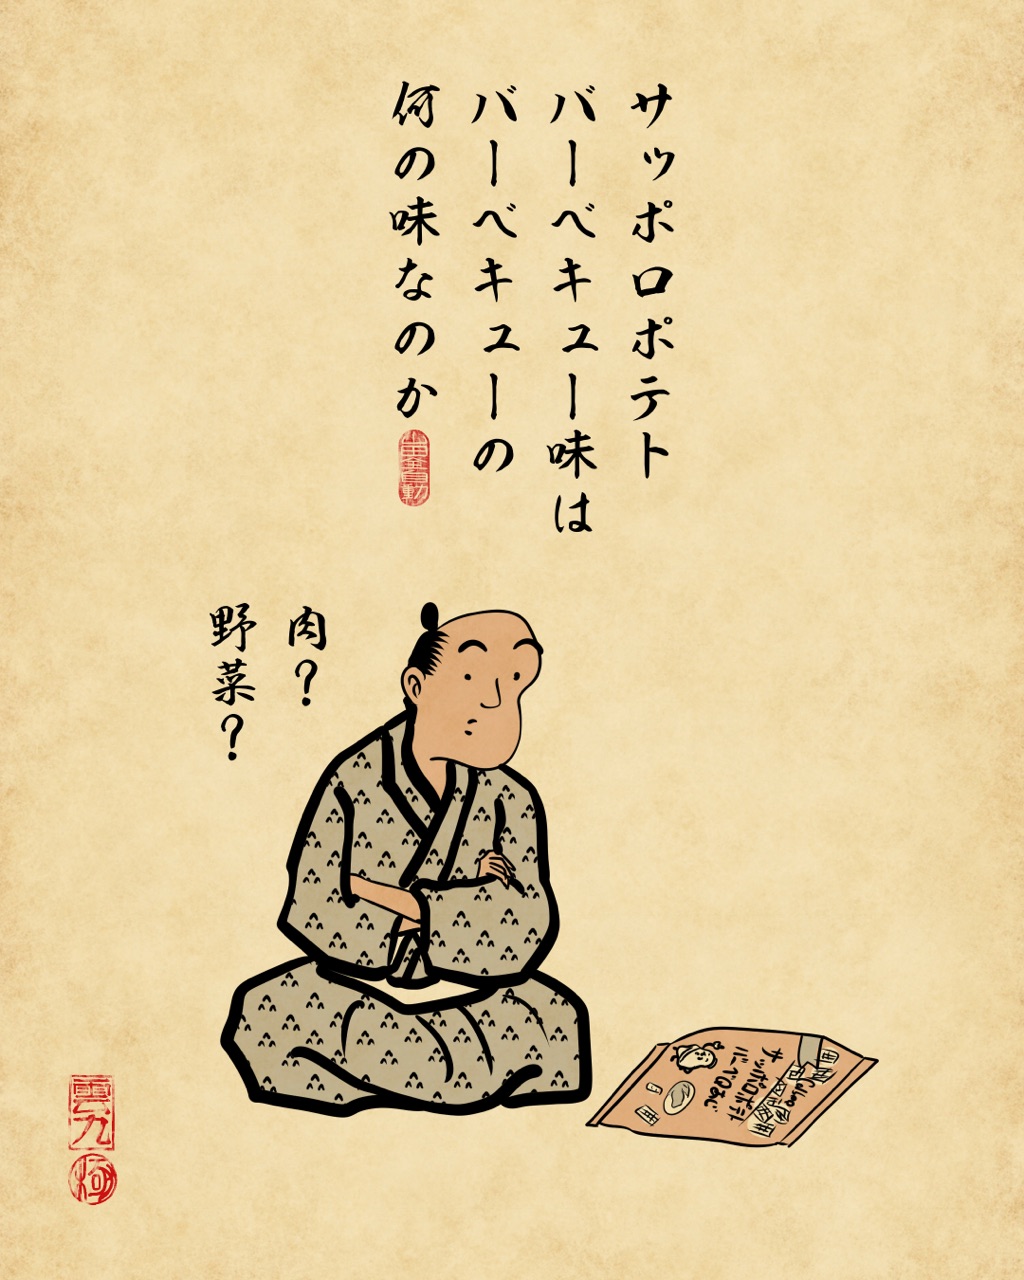 サッポロポテト
バーベキュー味は
バーベキューの
何の味なのか
肉？
野菜？
Calbee
サッポロポテト
バーベQあじ